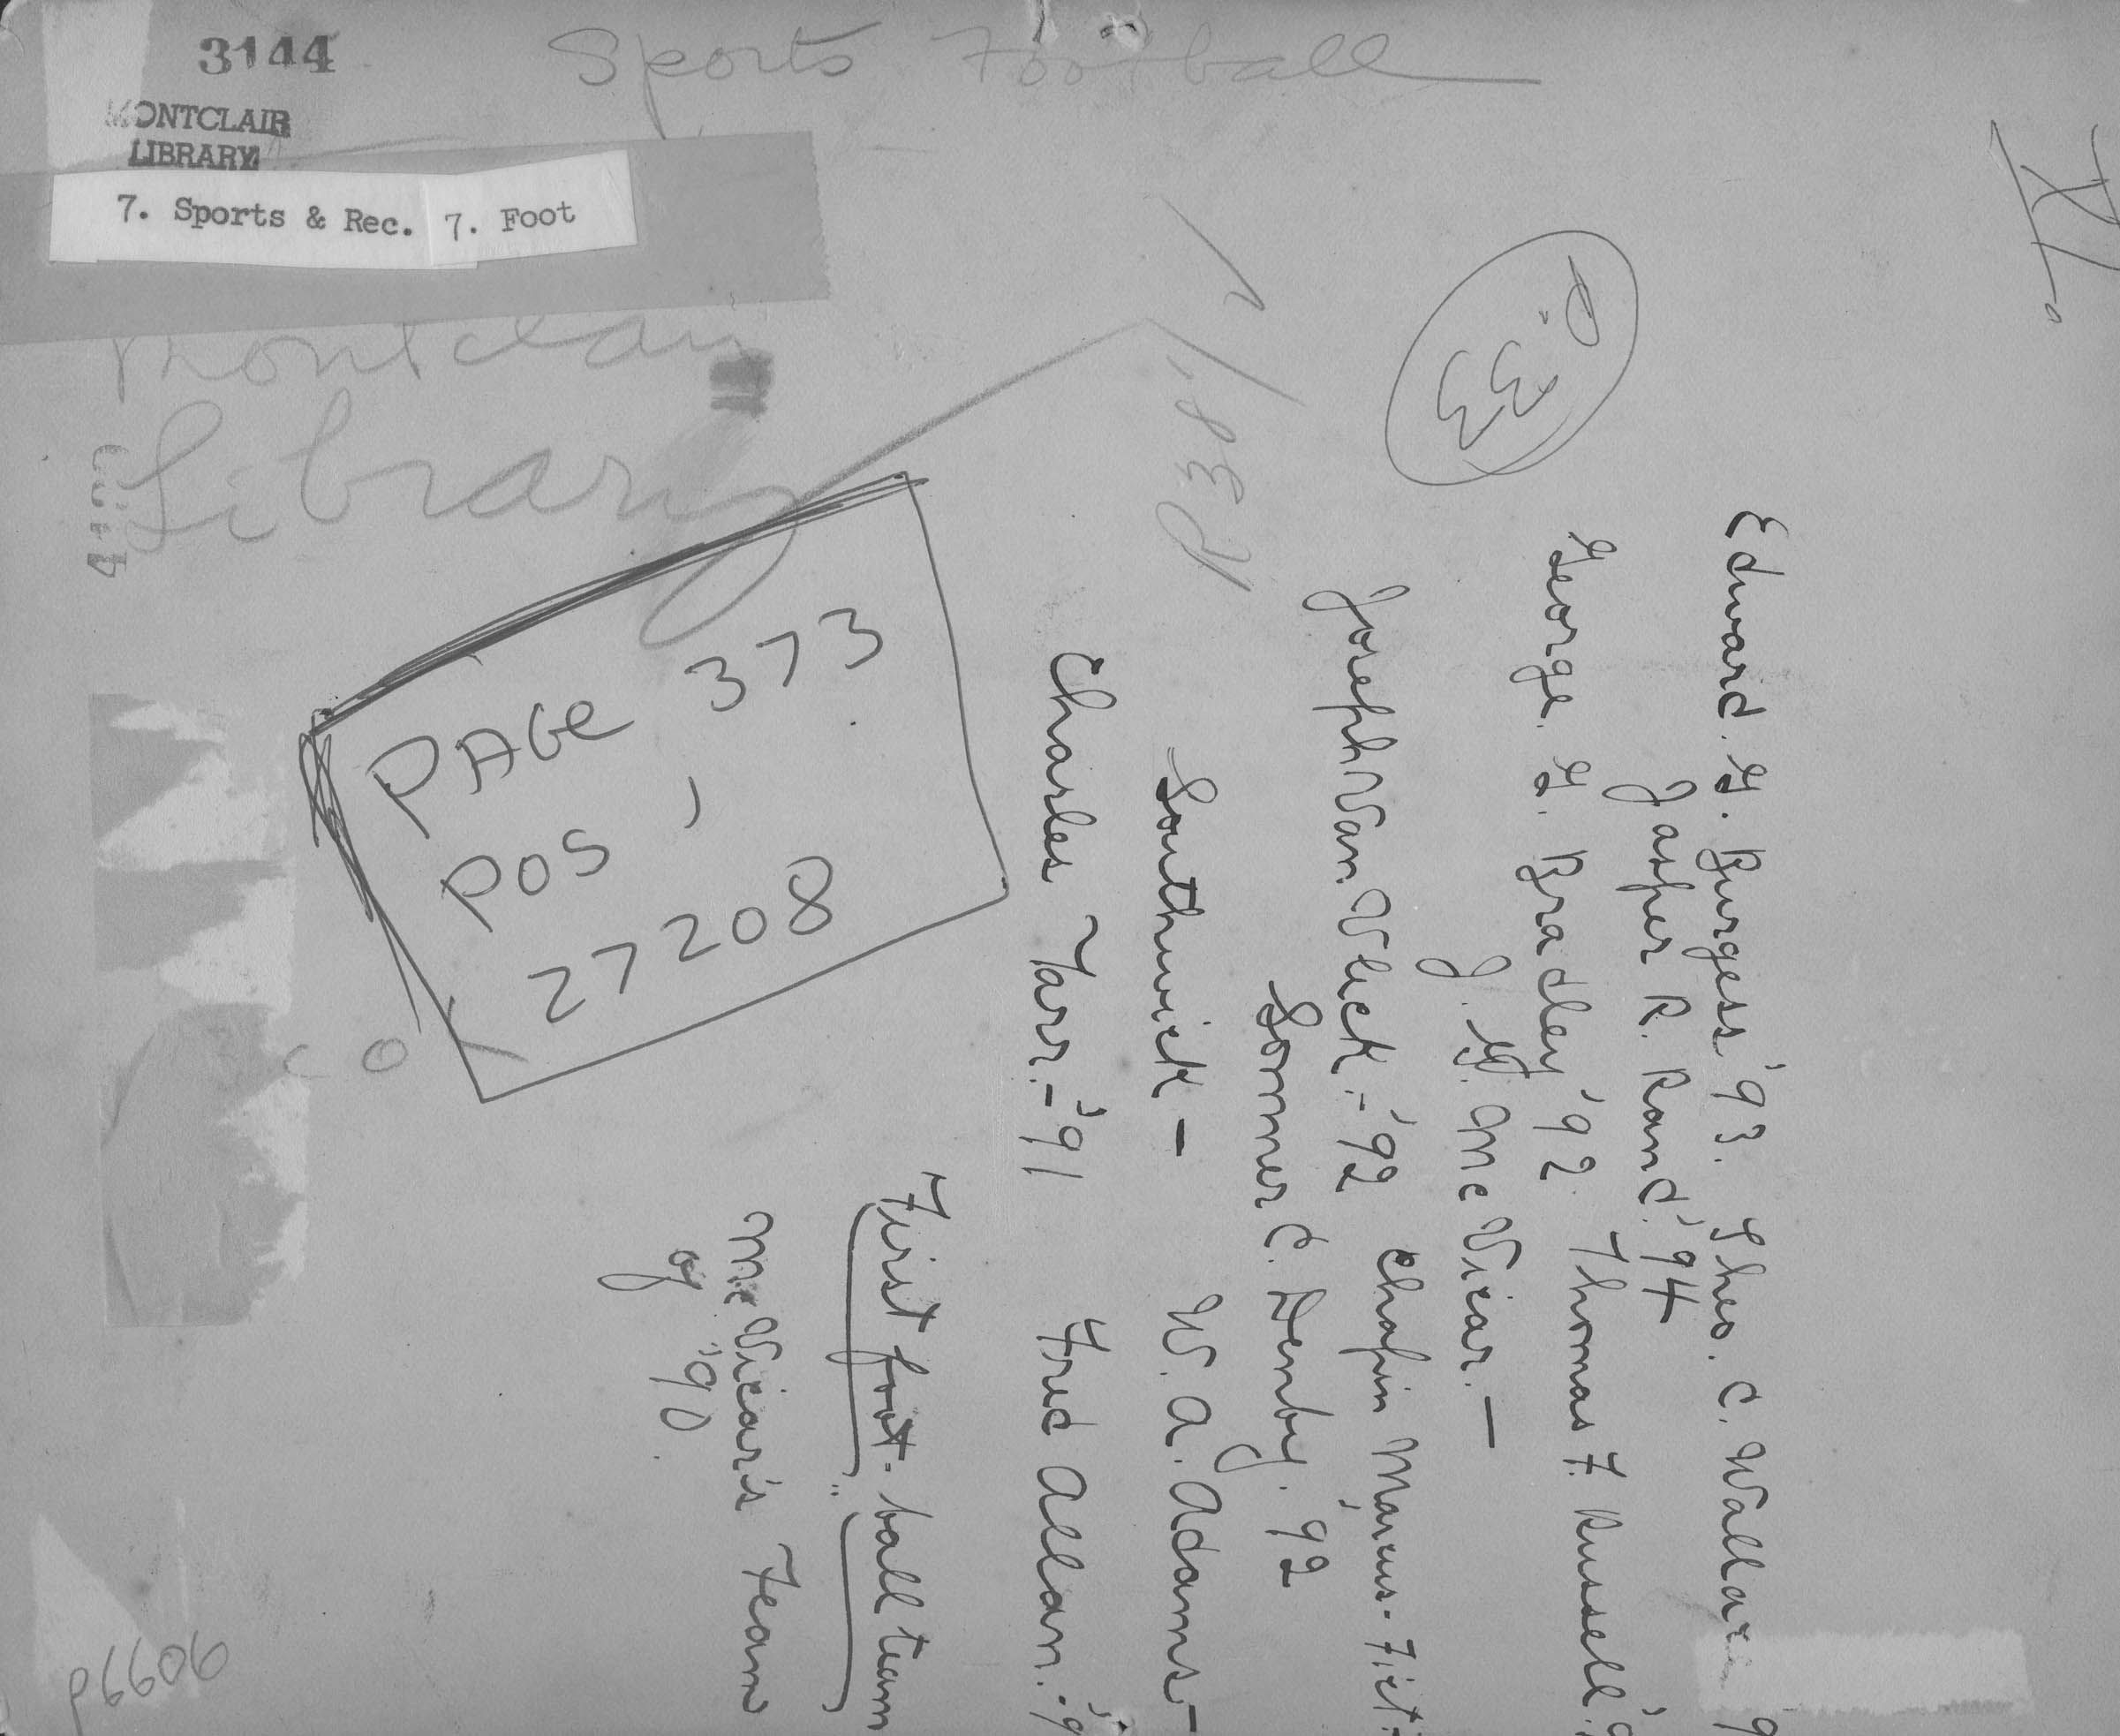 3144
Sports Football
MONTCLAIR
LIBRARY
7. Sports & Rec. 7. Foot
Montclair
Library
PAGE 373
POS 1
27208
P. 33
Edward. G. Burgess '93. Theo. C. Wallace
Jasper R. Rand. '94
George. G. Bradley '92. Thomas F. Russell.
J. G. McVicar. —
Joseph Van Vleck. - '92 Chapin Marcus.
Sommer C. Denby. 92
Southwick - W. A. Adams -
Charles Tarr. - '91 Fred Allan.
First foot-ball team
McVicar's Team
of '90.
p6606